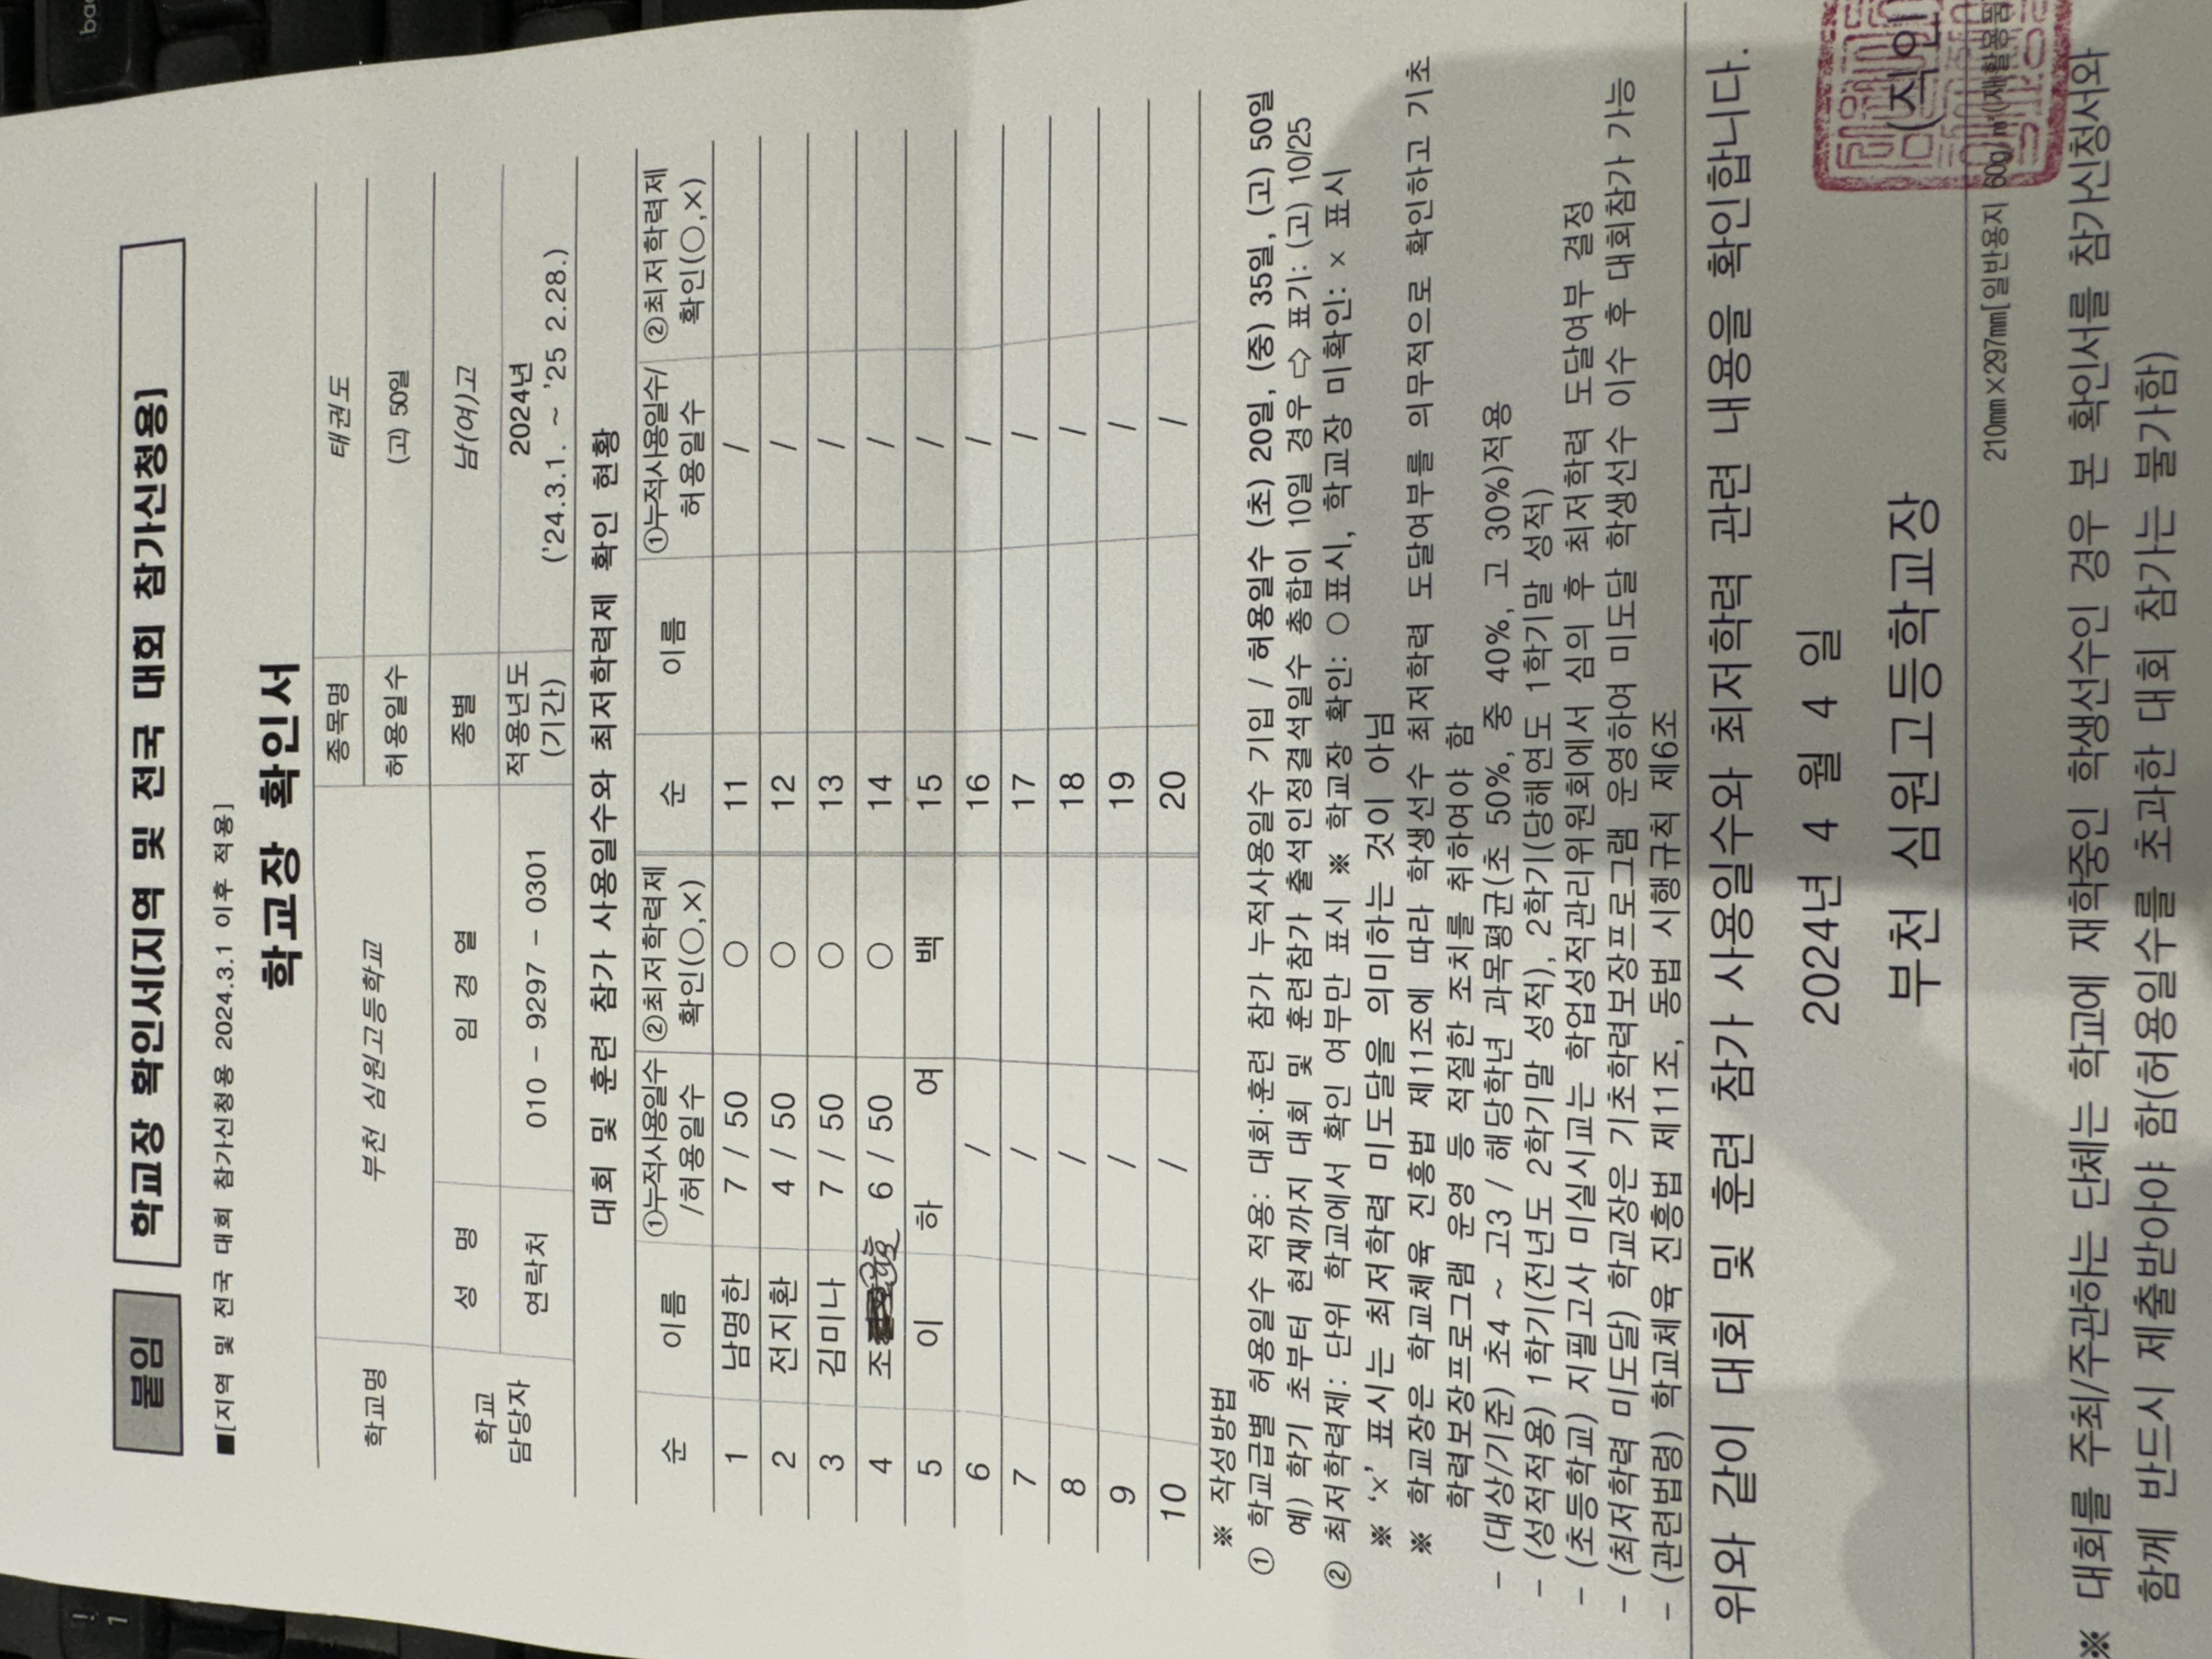 붙임
학교장 확인서[지역 및 전국 대회 참가신청용]
■[지역 및 전국 대회 참가신청용 2024.3.1 이후 적용]
학교장 확인서
학교명 부천 심원고등학교 종목명 태권도
허용일수 (고) 50일
학교 담당자 성 명 임 경 열 종별 남(여)고
연락처 010 - 9297 - 0301 적용년도 (기간) 2024년
('24.3.1. ~ '25 2.28.)
대회 및 훈련 참가 사용일수와 최저학력제 확인 현황
순 이름 ①누적사용일수 /허용일수 ②최저학력제 확인(○,×) 순 이름 ①누적사용일수/ 허용일수 ②최저학력제 확인(○,×)
1 남명한 7 / 50 ○ 11 /
2 전지환 4 / 50 ○ 12 /
3 김미나 7 / 50 ○ 13 /
4 조 6 / 50 ○ 14 /
5 이 하 여 백 15 /
6 / 16 /
7 / 17 /
8 / 18 /
9 / 19 /
10 / 20 /
※ 작성방법
① 학교급별 허용일수 적용: 대회·훈련 참가 누적사용일수 기입 / 허용일수 (초) 20일, (중) 35일, (고) 50일
예) 학기 초부터 현재까지 대회 및 훈련참가 출석인정결석일수 총합이 10일 경우 ⇨ 표기: (고) 10/25
② 최저학력제: 단위 학교에서 확인 여부만 표시 ※ 학교장 확인: ○표시, 학교장 미확인: × 표시
※ '×' 표시는 최저학력 미도달을 의미하는 것이 아님
※ 학교장은 학교체육 진흥법 제11조에 따라 학생선수 최저학력 도달여부를 의무적으로 확인하고 기초
학력보장프로그램 운영 등 적절한 조치를 취하여야 함
- (대상/기준) 초4 ~ 고3 / 해당학년 과목평균(초 50%, 중 40%, 고 30%)적용
- (성적적용) 1학기(전년도 2학기말 성적), 2학기(당해연도 1학기말 성적)
- (초등학교) 지필고사 미실시교는 학업성적관리위원회에서 심의 후 최저학력 도달여부 결정
- (최저학력 미도달) 학교장은 기초학력보장프로그램 운영하여 미도달 학생선수 이수 후 대회참가 가능
- (관련법령) 학교체육 진흥법 제11조, 동법 시행규칙 제6조
위와 같이 대회 및 훈련 참가 사용일수와 최저학력 관련 내용을 확인합니다.
2024년 4 월 4 일
부천 심원고등학교장 (직인
210㎜×297㎜[일반용지 60g/㎡(재활용품
※ 대회를 주최/주관하는 단체는 학교에 재학중인 학생선수인 경우 본 확인서를 참가신청서와
함께 반드시 제출받아야 함(허용일수를 초과한 대회 참가는 불가함)